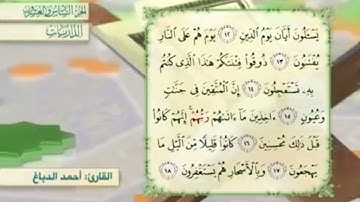 الجزء السادس والعشرون
الذاريات
يَسْـَٔلُونَ أَيَّانَ يَوْمُ ٱلدِّينِ ١٢ يَوْمَ هُمْ عَلَى ٱلنَّارِ
يُفْتَنُونَ ١٣ ذُوقُوا۟ فِتْنَتَكُمْ هَـٰذَا ٱلَّذِى كُنتُم
بِهِۦ تَسْتَعْجِلُونَ ١٤ إِنَّ ٱلْمُتَّقِينَ فِى جَنَّـٰتٍ
وَعُيُونٍ ١٥ ءَاخِذِينَ مَآ ءَاتَىٰهُمْ رَبُّهُمْ ۚ إِنَّهُمْ كَانُوا۟
قَبْلَ ذَٰلِكَ مُحْسِنِينَ ١٦ كَانُوا۟ قَلِيلًا مِّنَ ٱلَّيْلِ مَا
يَهْجَعُونَ ١٧ وَبِٱلْأَسْحَارِ هُمْ يَسْتَغْفِرُونَ ١٨
القارئ: أحمد الدباغ